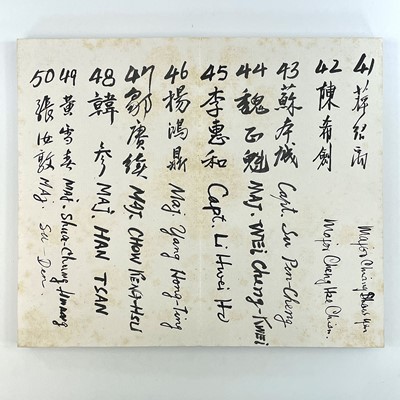 41 蔣紹禹 Major Chiang Shao Yu
42 陳希 Major Cheng Hse Chian.
43 蘇本城 Capt. Su Pen-Cheng
44 魏正魁 MAJ. WEI Chang-KWEI
45 李惠和 Capt. Li Hwei Ho
46 楊鴻鼎 Maj Yang Hong-Ting
47 鄒賡續 MAJ. CHOW KENG-HSU
48 韓 參 MAJ. HAN TSAN
49 黃雪春 Maj. Shua-Chung Hwang
50 張汝敦 MAJ. Su-Den.